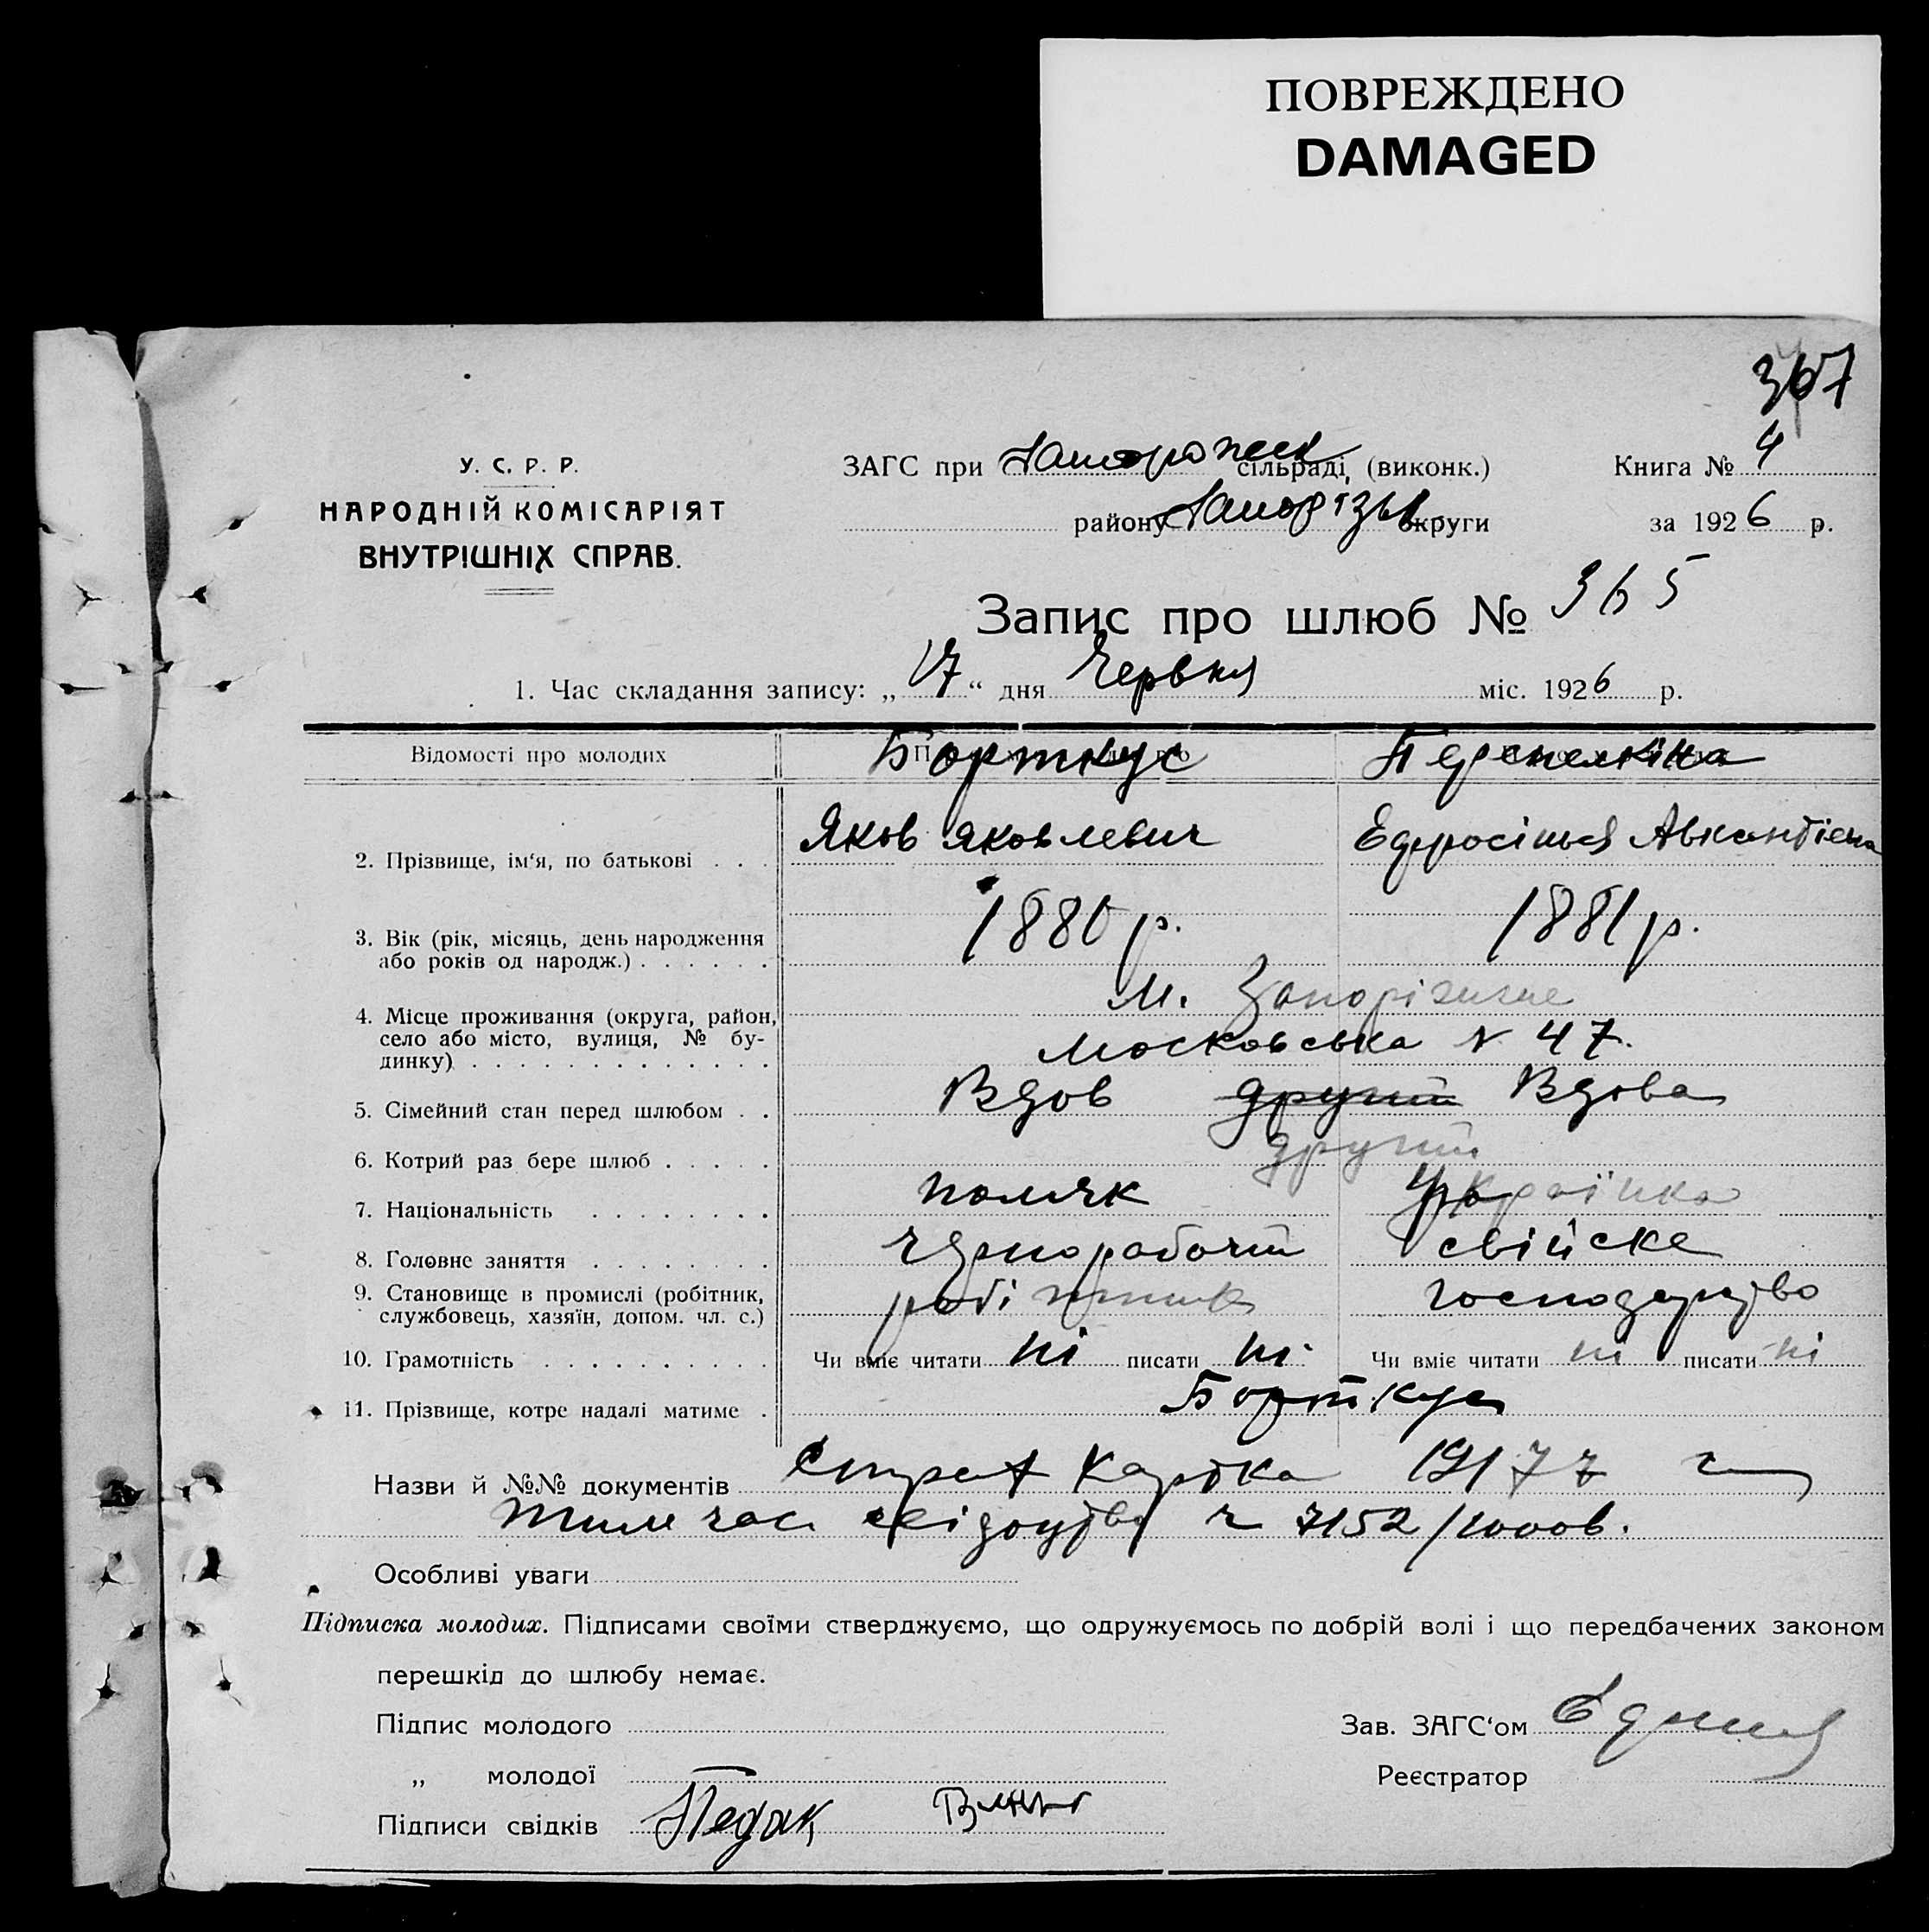 ПОВРЕЖДЕНО
DAMAGED
367
У. С. Р. Р.
НАРОДНІЙ КОМІСАРІЯТ
ВНУТРІШНІХ СПРАВ.
ЗАГС при Запорожск сільраді, (виконк.) Книга № 4
району Запорізьк округи за 1926 р.
Запис про шлюб № 365
1. Час складання запису: „17“ дня Червня міс. 1926 р.
Відомості про молодих Борткус
2. Прізвище, ім‘я, по батькові . . . Яков Яковлевич Ефросінья
3. Вік (рік, місяць, день народження 1880 р. 1881 р.
або років од народж.) . . . . . .
4. Місце проживання (округа, район, м. Запоріжже
село або місто, вулиця, № бу- Московська N 47.
динку) . . . . . . . . . . . . .
5. Сімейний стан перед шлюбом . . Вдов другий Вдова
6. Котрий раз бере шлюб . . . . . другий
7. Національність . . . . . . . . поляк Українка
8. Головне заняття . . . . . . . . чернорабочий свійске
9. Становище в промислі (робітник, робітник господарство
службовець, хазяїн, допом. чл. с.)
10. Грамотність . . . . . . . . . . Чи вміє читати ні писати ні Чи вміє читати ні писати ні
11. Прізвище, котре надалі матиме . Борткус
Назви й №№ документів картка
ч 7152
Особливі уваги
Підписка молодих. Підписами своїми стверджуємо, що одружуємось по добрій волі і що передбачених законом
перешкід до шлюбу немає.
Підпис молодого Зав. ЗАГС‘ом
„ молодої Реєстратор
Підписи свідків